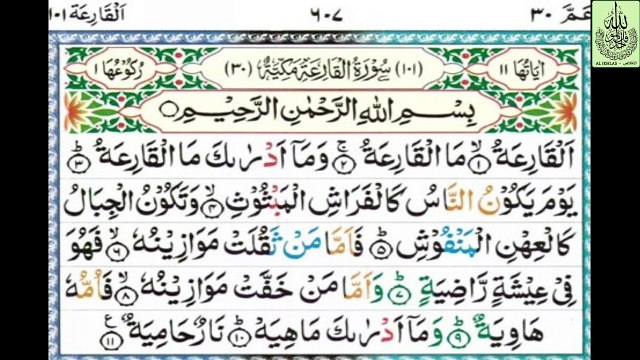 اَلْقَارِعَة ١٠١
٦٠٧
عَمّ ٣٠
اٰيَاتُهَا ١١
(١٠١) سُوْرَةُ الْقَارِعَةِ مَكِّيَّةٌ (٣٠)
رُكُوْعُهَا ١
بِسْمِ اللّٰهِ الرَّحْمٰنِ الرَّحِيْمِ
اَلْقَارِعَةُ ۙ﴿١﴾ مَا الْقَارِعَةُ ۚ﴿٢﴾ وَمَاۤ اَدْرٰىكَ مَا الْقَارِعَةُ ؕ﴿٣﴾
يَوْمَ يَكُوْنُ النَّاسُ كَالْفَرَاشِ الْمَبْثُوْثِ ۙ﴿٤﴾ وَتَكُوْنُ الْجِبَالُ
كَالْعِهْنِ الْمَنْفُوْشِ ؕ﴿٥﴾ فَاَمَّا مَنْ ثَقُلَتْ مَوَازِيْنُهٗ ۙ﴿٦﴾ فَهُوَ
فِيْ عِيْشَةٍ رَّاضِيَةٍ ؕ﴿٧﴾ وَاَمَّا مَنْ خَفَّتْ مَوَازِيْنُهٗ ۙ﴿٨﴾ فَاُمُّهٗ
هَاوِيَةٌ ؕ﴿٩﴾ وَمَاۤ اَدْرٰىكَ مَاهِيَهْ ؕ﴿١٠﴾ نَارٌ حَامِيَةٌ ﴿١١﴾